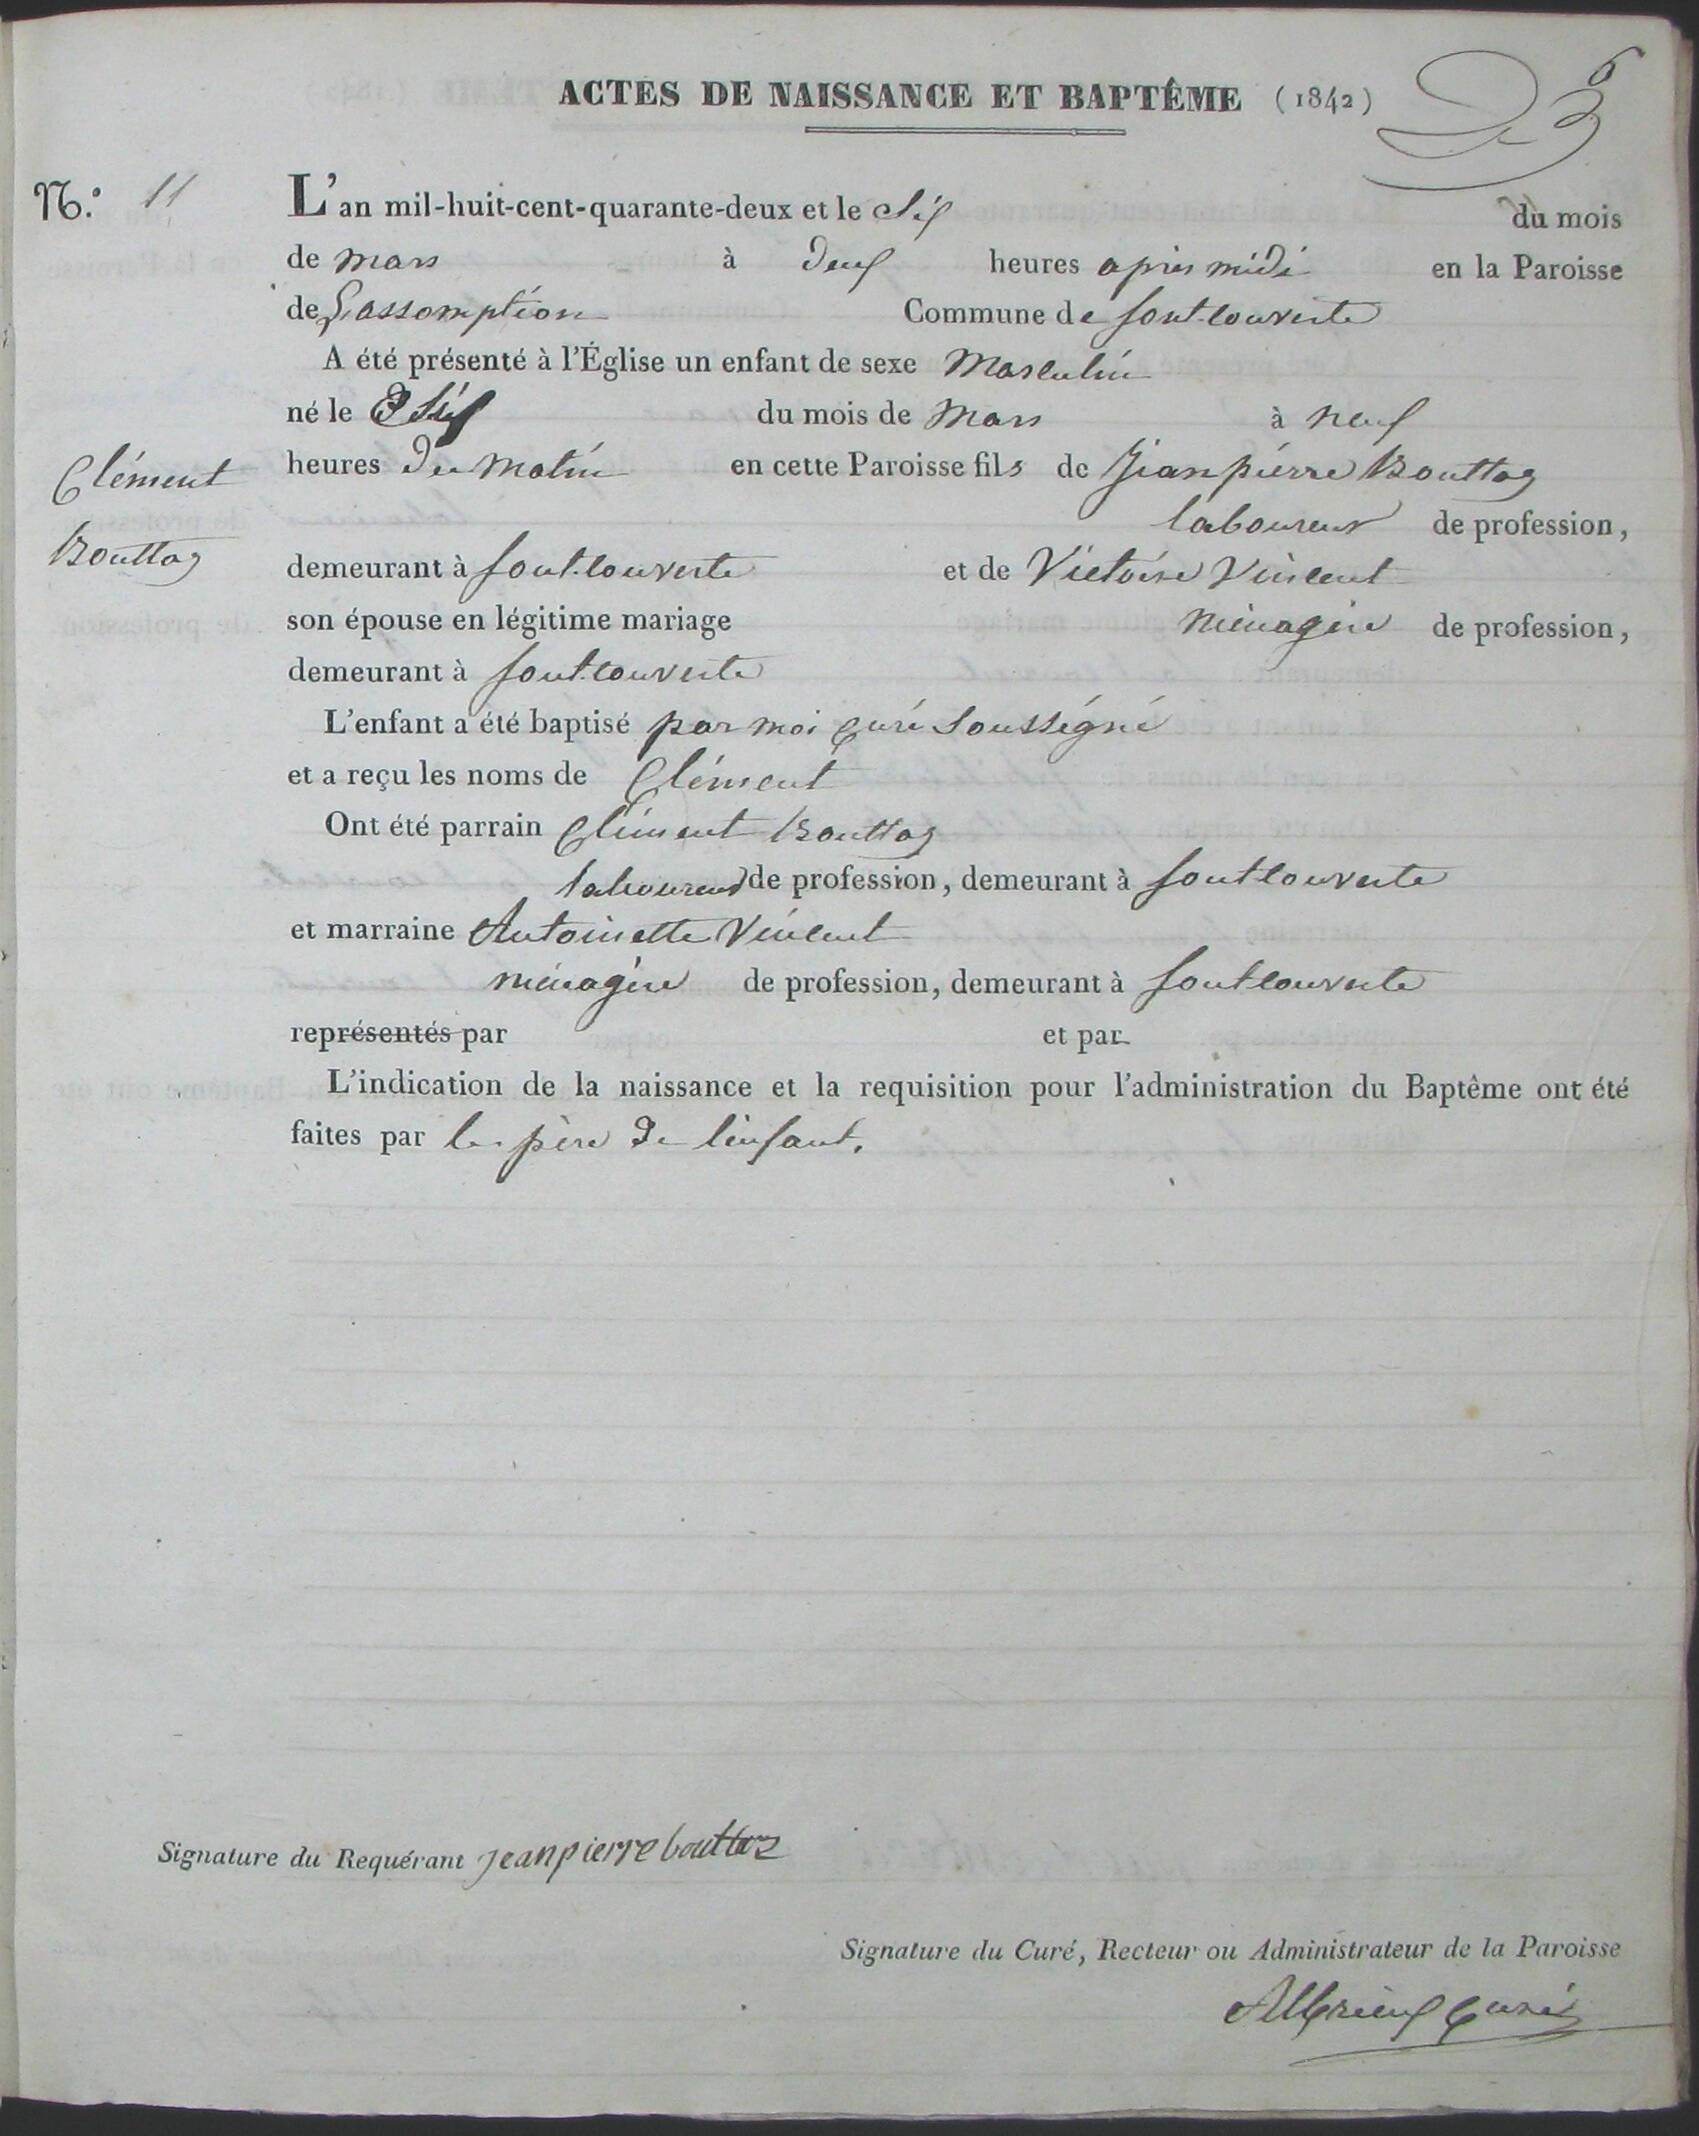 ACTES DE NAISSANCE ET BAPTÊME (1842)
6
N.º 11
L'an mil-huit-cent-quarante-deux et le Six du mois
de mars à deux heures après midi en la Paroisse
de L'assomption Commune de fontcouverte
A été présenté à l'Église un enfant de sexe Masculin
né le Six du mois de Mars à neuf
heures du Matin en cette Paroisse fils de Jeanpierre Bouttaz
Clément
Bouttaz
laboureur de profession,
demeurant à fontcouverte et de Victoire Vincent
son épouse en légitime mariage ménagère de profession,
demeurant à fontcouverte
L'enfant a été baptisé par moi curé soussigné
et a reçu les noms de Clément
Ont été parrain Clément Bouttaz
laboureur de profession, demeurant à fontcouverte
et marraine Antoinette Vincent
ménagère de profession, demeurant à fontcouverte
représentés par et par
L'indication de la naissance et la requisition pour l'administration du Baptême ont été
faites par le père de l'enfant.
Signature du Requérant jeanpierre bouttaz
Signature du Curé, Recteur ou Administrateur de la Paroisse
Albrieux curé